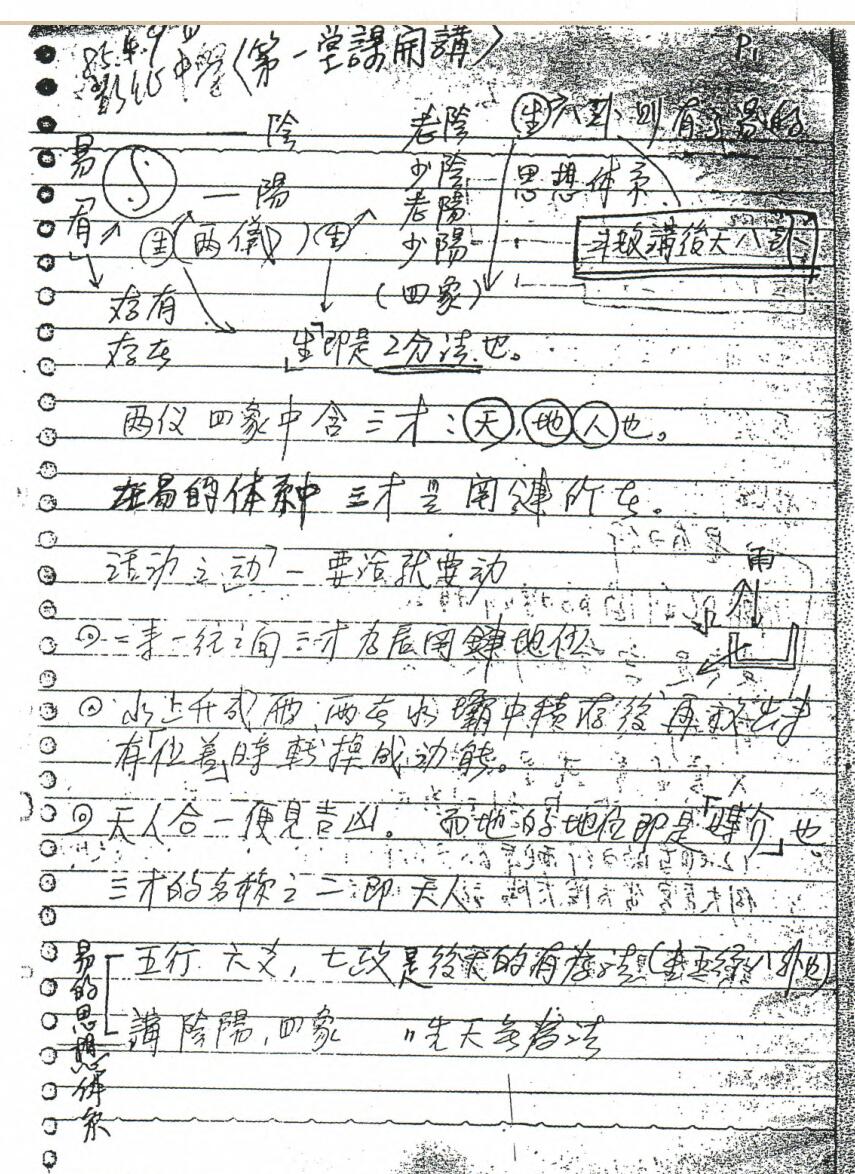 85.4.9 〈第一堂課開講〉 P1
易 — 陰 老陰 生八卦,則有了易的
少陰 思想体系
「有」 — 陽 老陽
生(兩儀) 生 少陽 斗數講後天八卦
存有 (四象)
存在 「生」即是2分法也。
兩仪四象中含三才:天,地人也。
在易的体系中 三才是関鍵所在。
活动之「动」— 要活就要动
雨
水
⊙ 二求一統之间三才为居関鍵地位
⊙ 水上升成雨,雨在水壩中積存後,再放出來
有「位差」時轉換成动能。
⊙ 天人合一便見吉凶。而地的地位即是「媒介」也
三才的名称之二即天人
易的思想体系
五行.六爻,七政是後天的有為法
講陰陽,四象 〃先天無為法